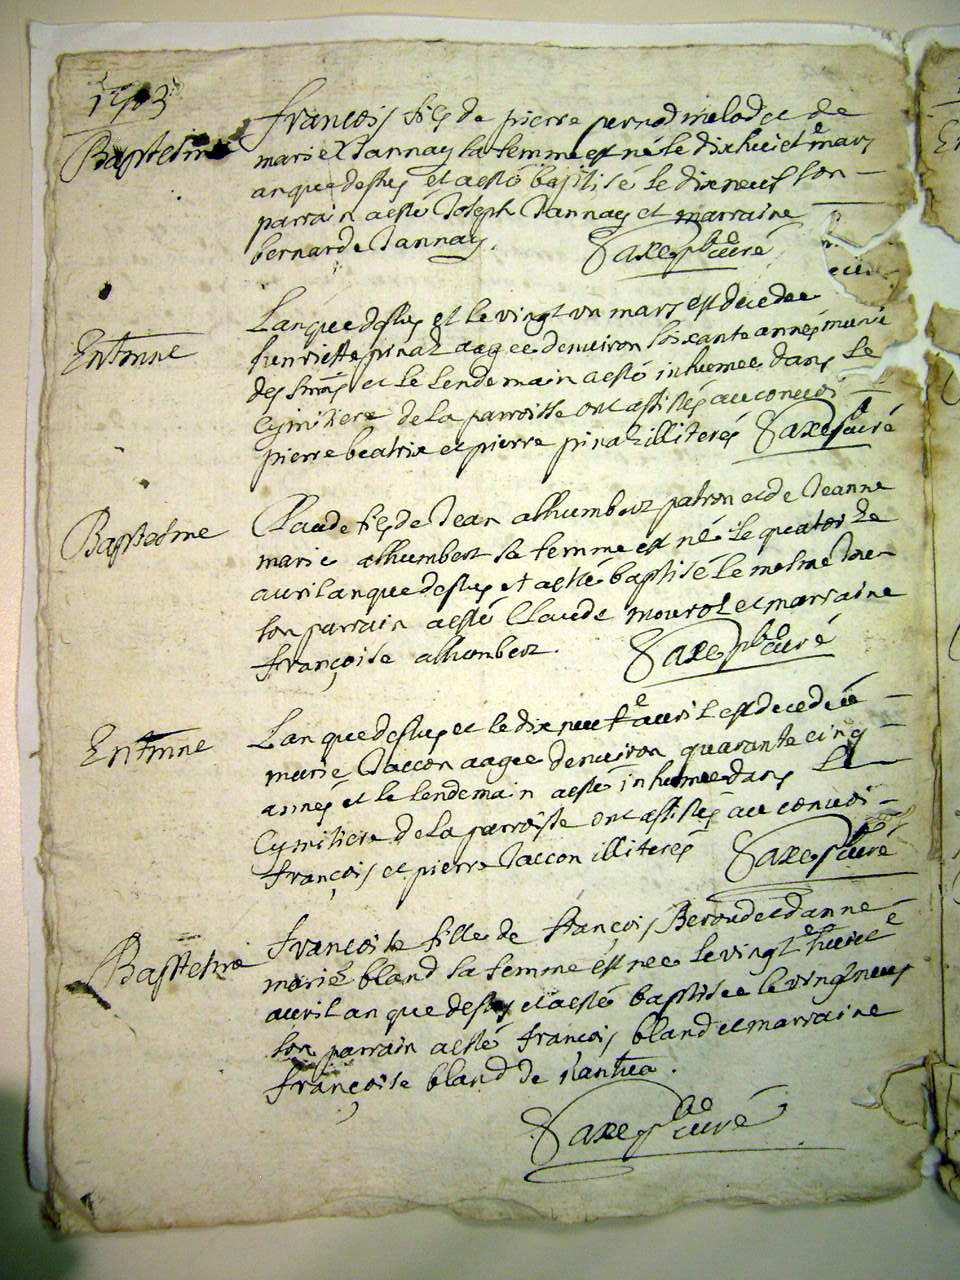 1703
Baptesme
françois fils de pierre pernod melod et de
marie Jannay sa femme est né le dixhuict.e mars
an que dessus et a esté baptisé le dixneuf son
parrain a esté Joseph Jannay et marraine
bernarde Jannay. Saxe pbre curé
Enterrme
Lan que dessus et le vingt un mars est decedee
henriette pinal aagee denuiron soixante annes munie
des smts et le lendemain a esté inhumee dans le
Cymitiere de la parroisse ont assistés au conuoi
pierre beatrix et pierre pinal illiterés Saxe curé
Baptesme
Claude fils de Jean alhumbert patron et de Jeanne
marie alhumbert sa femme est né le quatorze
auril an que dessus et a esté baptisé le mesme Jour
son parrain a esté Claude mourot et marraine
françoise alhumbert. Saxe pbre curé
Enterrme
Lan que dessus et le dix neuf.e auril est decedée
marie Jaccon aagee denuiron quarante cinq
annes et le lendemain a esté inhumee dans le
Cymitiere de la parroisse ont assistés au conuoi
françois et pierre Jaccon illiterés Saxe curé
Baptesme
françoise fille de françois Beroud et danne
marie bland sa femme est nee le vingt huict.e
auril an que dessus et a esté baptisee le vingt neuf
son parrain a esté françois bland et marraine
françoise bland de nantua.
Saxe pbre curé